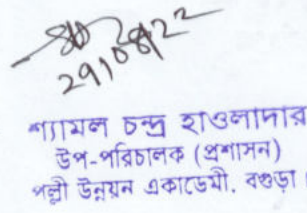 ২৯/০৪/২২
শ্যামল চন্দ্র হাওলাদার
উপ-পরিচালক (প্রশাসন)
পল্লী উন্নয়ন একাডেমী, বগুড়া।